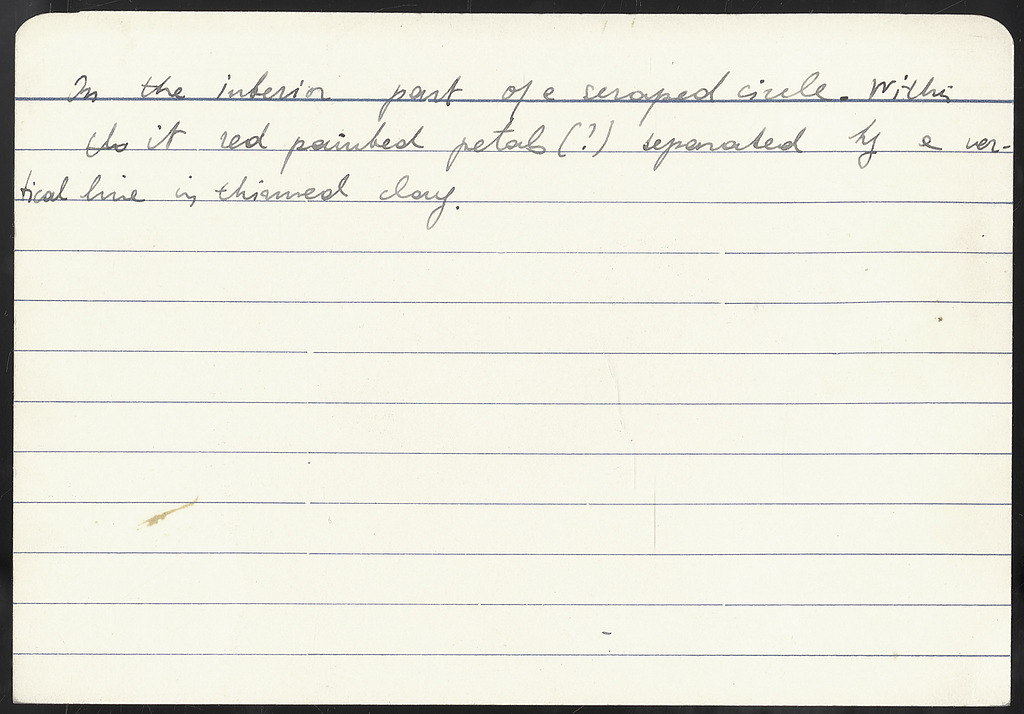 In the interior part of a scraped circle. Within
it red painted petals (?) separated by a ver-
tical line in thinned clay.